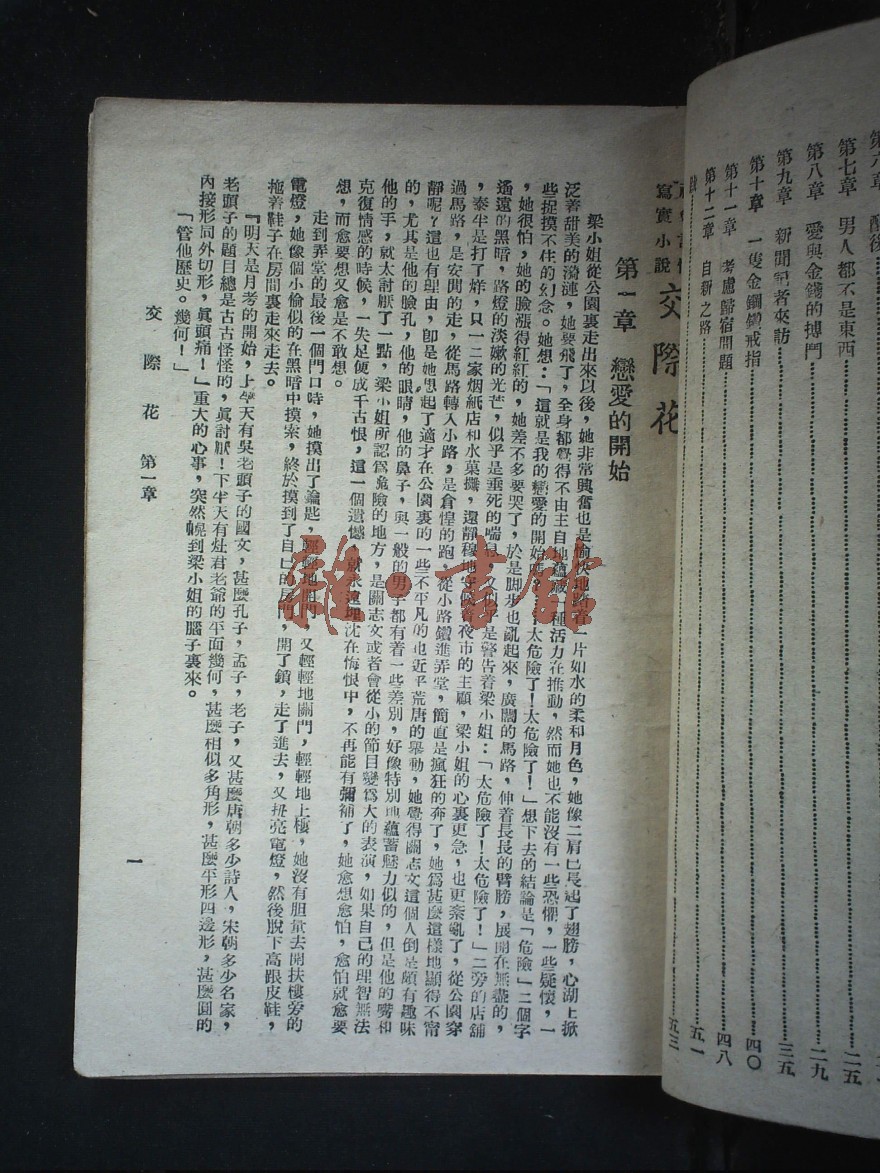 第七章 男人都不是東西…………二五
第八章 愛與金錢的搏鬥…………二九
第九章 新聞記者來訪…………三五
第十章 一隻金鋼鑽戒指…………四〇
第十一章 考慮歸宿問題…………四八
第十二章 自新之路…………五一
五三
寫實小說 交際花
第一章 戀愛的開始
梁小姐從公園裏走出來以後,她非常興奮也是愉快地踏着一片如水的柔和月色,她像二肩已長起了翅膀,心湖上掀
泛着甜美的漪漣,她要飛了,全身都覺得不由主自地蘊藏一種活力在推動,然而她也不能沒有一些恐懼,一些疑懷,一
些捉摸不住的幻念。她想:「這就是我的戀愛的開始嗎?太危險了!太危險了!」想下去的結論是「危險」二個字
,她很怕,她的臉漲得紅紅的,她差不多要哭了,於是脚步也亂起來,廣闊的馬路,伸着長長的臂膀,展開在無盡的,
遙遠的黑暗,路燈的淡嫩的光芒,似乎是垂死的喘息,又似乎是警告着梁小姐:「太危險了!太危險了!」二旁的店舖
,泰半是打了烊,只一二家烟紙店和水菓攤,還靜穆地守候着夜市的主顧,梁小姐的心裏更急,也更紊亂了,從公園穿
過馬路,是安閒的走,從馬路轉入小路,是倉惶的跑,從小路鑽進弄堂,簡直是瘋狂的奔了,她爲甚麼這樣地顯得不甯
靜呢?這也有理由,卽是她想起了適才在公園裏的一些不平凡的也近乎荒唐的舉動,她覺得關志文這個人倒是頗有趣味
的,尤其是他的臉孔,他的眼睛,他的鼻子,與一般的男子都有着一些差別,好像特別地蘊蓄魅力似的,但是他的嘴和
他的手,就太討厭了一點,梁小姐所認爲危險的地方,是關志文或者會從小的節目變爲大的表演,如果自己的理智無法
克復情感的時候,一失足便成千古恨,這一個遺憾,就永遠埋沈在悔恨中,不再能有彌補了,她愈想愈怕,愈怕就愈要
想,而愈要想又愈是不敢想。
走到弄堂的最後一個門口時,她摸出了鑰匙,輕輕地開門,又輕輕地關門,輕輕地上樓,她沒有胆量去開扶樓旁的
電燈,她像個小偷似的在黑暗中摸索,終於摸到了自己的房門,開了鎖,走了進去,又扭亮電燈,然後脫下高跟皮鞋,
拖着鞋子在房間裏走來走去。
『明天是月考的開始,上半天有吳老頭子的國文,甚麼孔子,孟子,老子,又甚麼唐朝多少詩人,宋朝多少名家,
老頭子的題目總是古古怪怪的,眞討厭!下半天有灶君老爺的平面幾何,甚麼相似多角形,甚麼平形四邊形,甚麼圓的
內接形同外切形,眞頭痛!」重大的心事,突然幌到梁小姐的腦子裏來。
「管他歷史。幾何!」
交際花 第一章
一